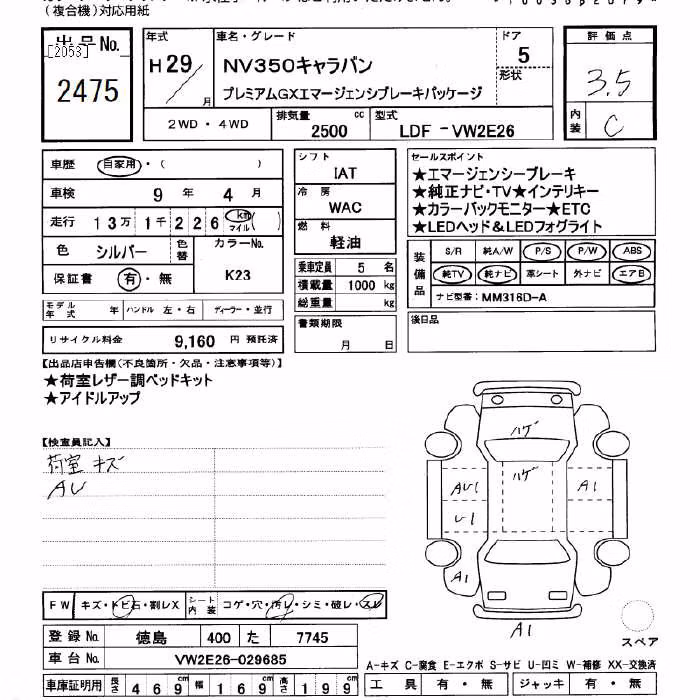 (複合機)対応用紙
出品No.
[2053]
2475
年式
H29
月
車名・グレード
NV350キャラバン
プレミアムGXエマージェンシブレーキパッケージ
ドア
5
形状
評価点
3.5
内装
C
2WD・4WD
排気量
2500 cc
型式
LDF-VW2E26
車歴 自家用・( )
車検 9年 4月
走行 13万1千226 km マイル( )
色 シルバー 色替 カラーNo.
K23
保証書 有・無
モデル年式 年 ハンドル 左・右 ディーラー・並行
リサイクル料金 9,160 円 預託済
シフト
IAT
冷房
WAC
燃料
軽油
乗車定員 5 名
積載量 1000 kg
総重量 kg
書類期限
月 日
セールスポイント
★エマージェンシーブレーキ
★純正ナビ・TV★インテリキー
★カラーバックモニター★ETC
★LEDヘッド&LEDフォグライト
装備品
S/R 純A/W P/S P/W ABS
純TV 純ナビ 革シート 外ナビ エアB
ナビ型番:MM316D-A
後日品
【出品店申告欄(不良箇所・欠品・注意事項等)】
★荷室レザー調ベッドキット
★アイドルアップ
【検査員記入】
荷室 キズ
AU
ハゲ
ハゲ
AU1
A1
U1
A1
A1
スペア
FW キズ・トビ石・割レX シート内装 コゲ・穴・汚レ・シミ・破レ・スレ
登録No. 徳島 400 た 7745
車台No. VW2E26-029685
車庫証明用 長さ 469 幅 169 高さ 199
A-キズ C-腐食 E-エクボ S-サビ U-凹ミ W-補修 XX-交換済
工具 有・無 ジャッキ 有・無